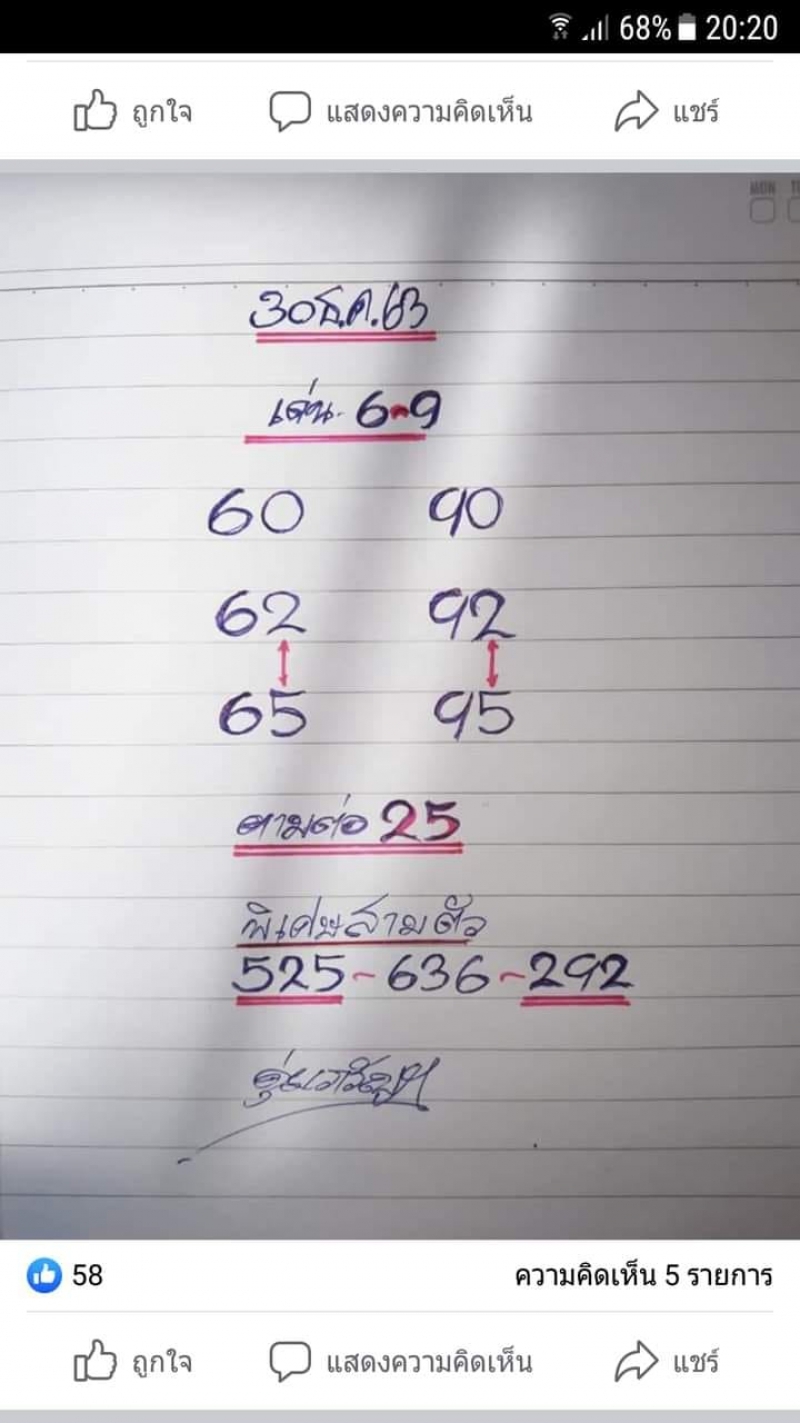 68% 20:20
ถูกใจ แสดงความคิดเห็น แชร์
MON
30 ธ.ค. 63
เด่น. 6-9
60 90
62 92
65 95
ตามต่อ 25
พิเศษสามตัว
525-636-292
58 ความคิดเห็น 5 รายการ
ถูกใจ แสดงความคิดเห็น แชร์